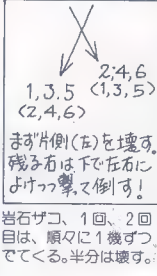 2.4,6
1,3.5
(1,3,5)
(2,4,6)
まず片側(左)を壊す。
残る右は下で左右に
よけつつ撃って倒す!
岩石ザコ、1回、2回
目は、順々に1機ずつ
でてくる。半分は壊す。